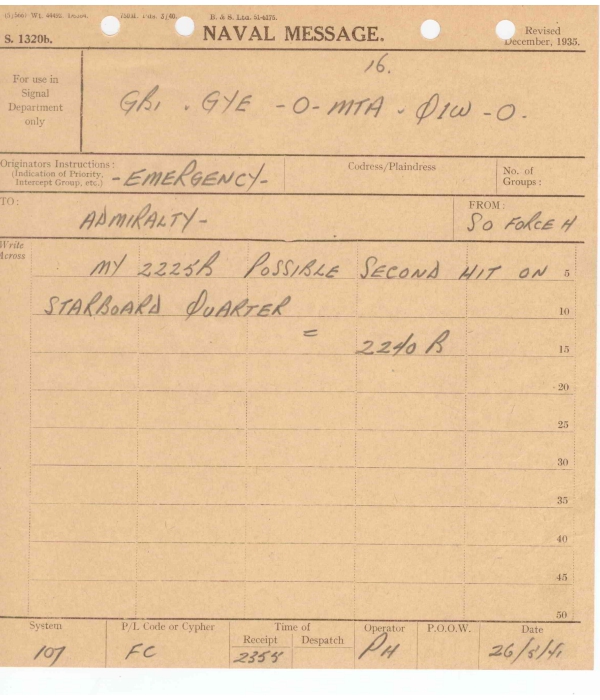 S. 1320b.
NAVAL MESSAGE.
Revised
December, 1935.
16.
For use in
Signal
Department
only
GBI . GYE - O - MTA - Q1W - O.
Originators Instructions:
(Indication of Priority,
Intercept Group, etc.)
- EMERGENCY -
Codress/Plaindress
No. of
Groups:
TO:
ADMIRALTY -
FROM:
SO FORCE H
Write
Across
MY 2225B POSSIBLE SECOND HIT ON 5
STARBOARD QUARTER 10
= 2240 B 15
20
25
30
35
40
45
50
System
P/L Code or Cypher
Time of
Receipt
Despatch
Operator
P.O.O.W.
Date
107
FC
2355
PH
26/5/41